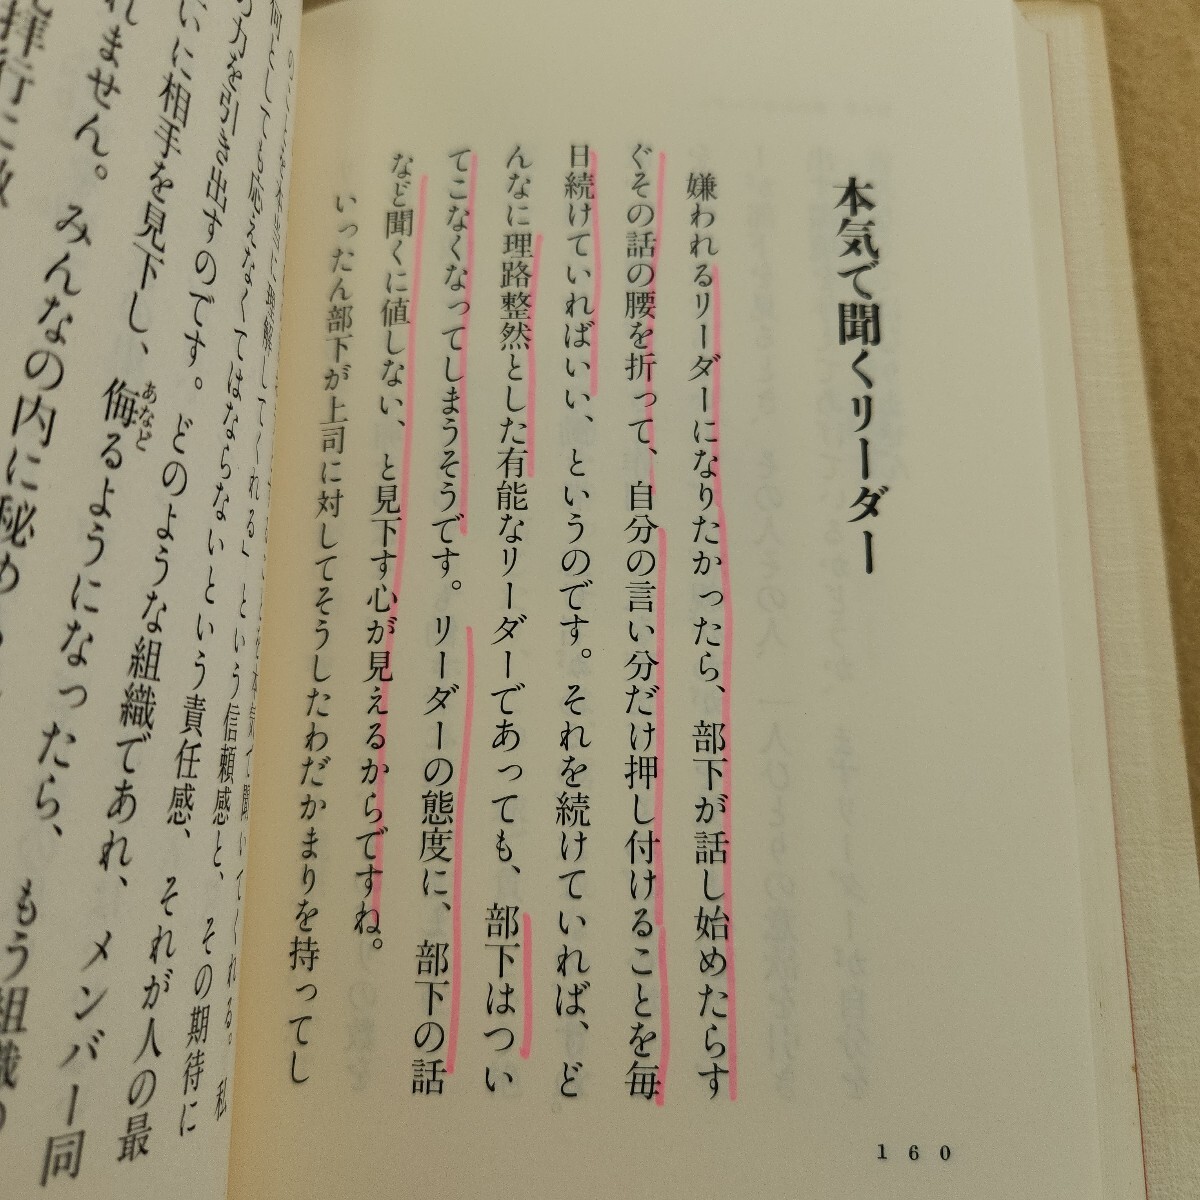 本気で聞くリーダー
嫌われるリーダーになりたかったら、部下が話し始めたらす
ぐその話の腰を折って、自分の言い分だけ押し付けることを毎
日続けていればいい、というのです。それを続けていれば、ど
んなに理路整然とした有能なリーダーであっても、部下はつい
てこなくなってしまうそうです。リーダーの態度に、部下の話
など聞くに値しない、と見下す心が見えるからですね。
いったん部下が上司に対してそうしたわだかまりを持ってし
160
理解してくれる」という信頼感と、その期待に
何としても応えなくてはならないという責任感、それが人の最
の力を引き出すのです。どのような組織であれ、メンバー同
いに相手を見下し、侮るようになったら、もう組織の
あなど
れません。みんなの内に秘め